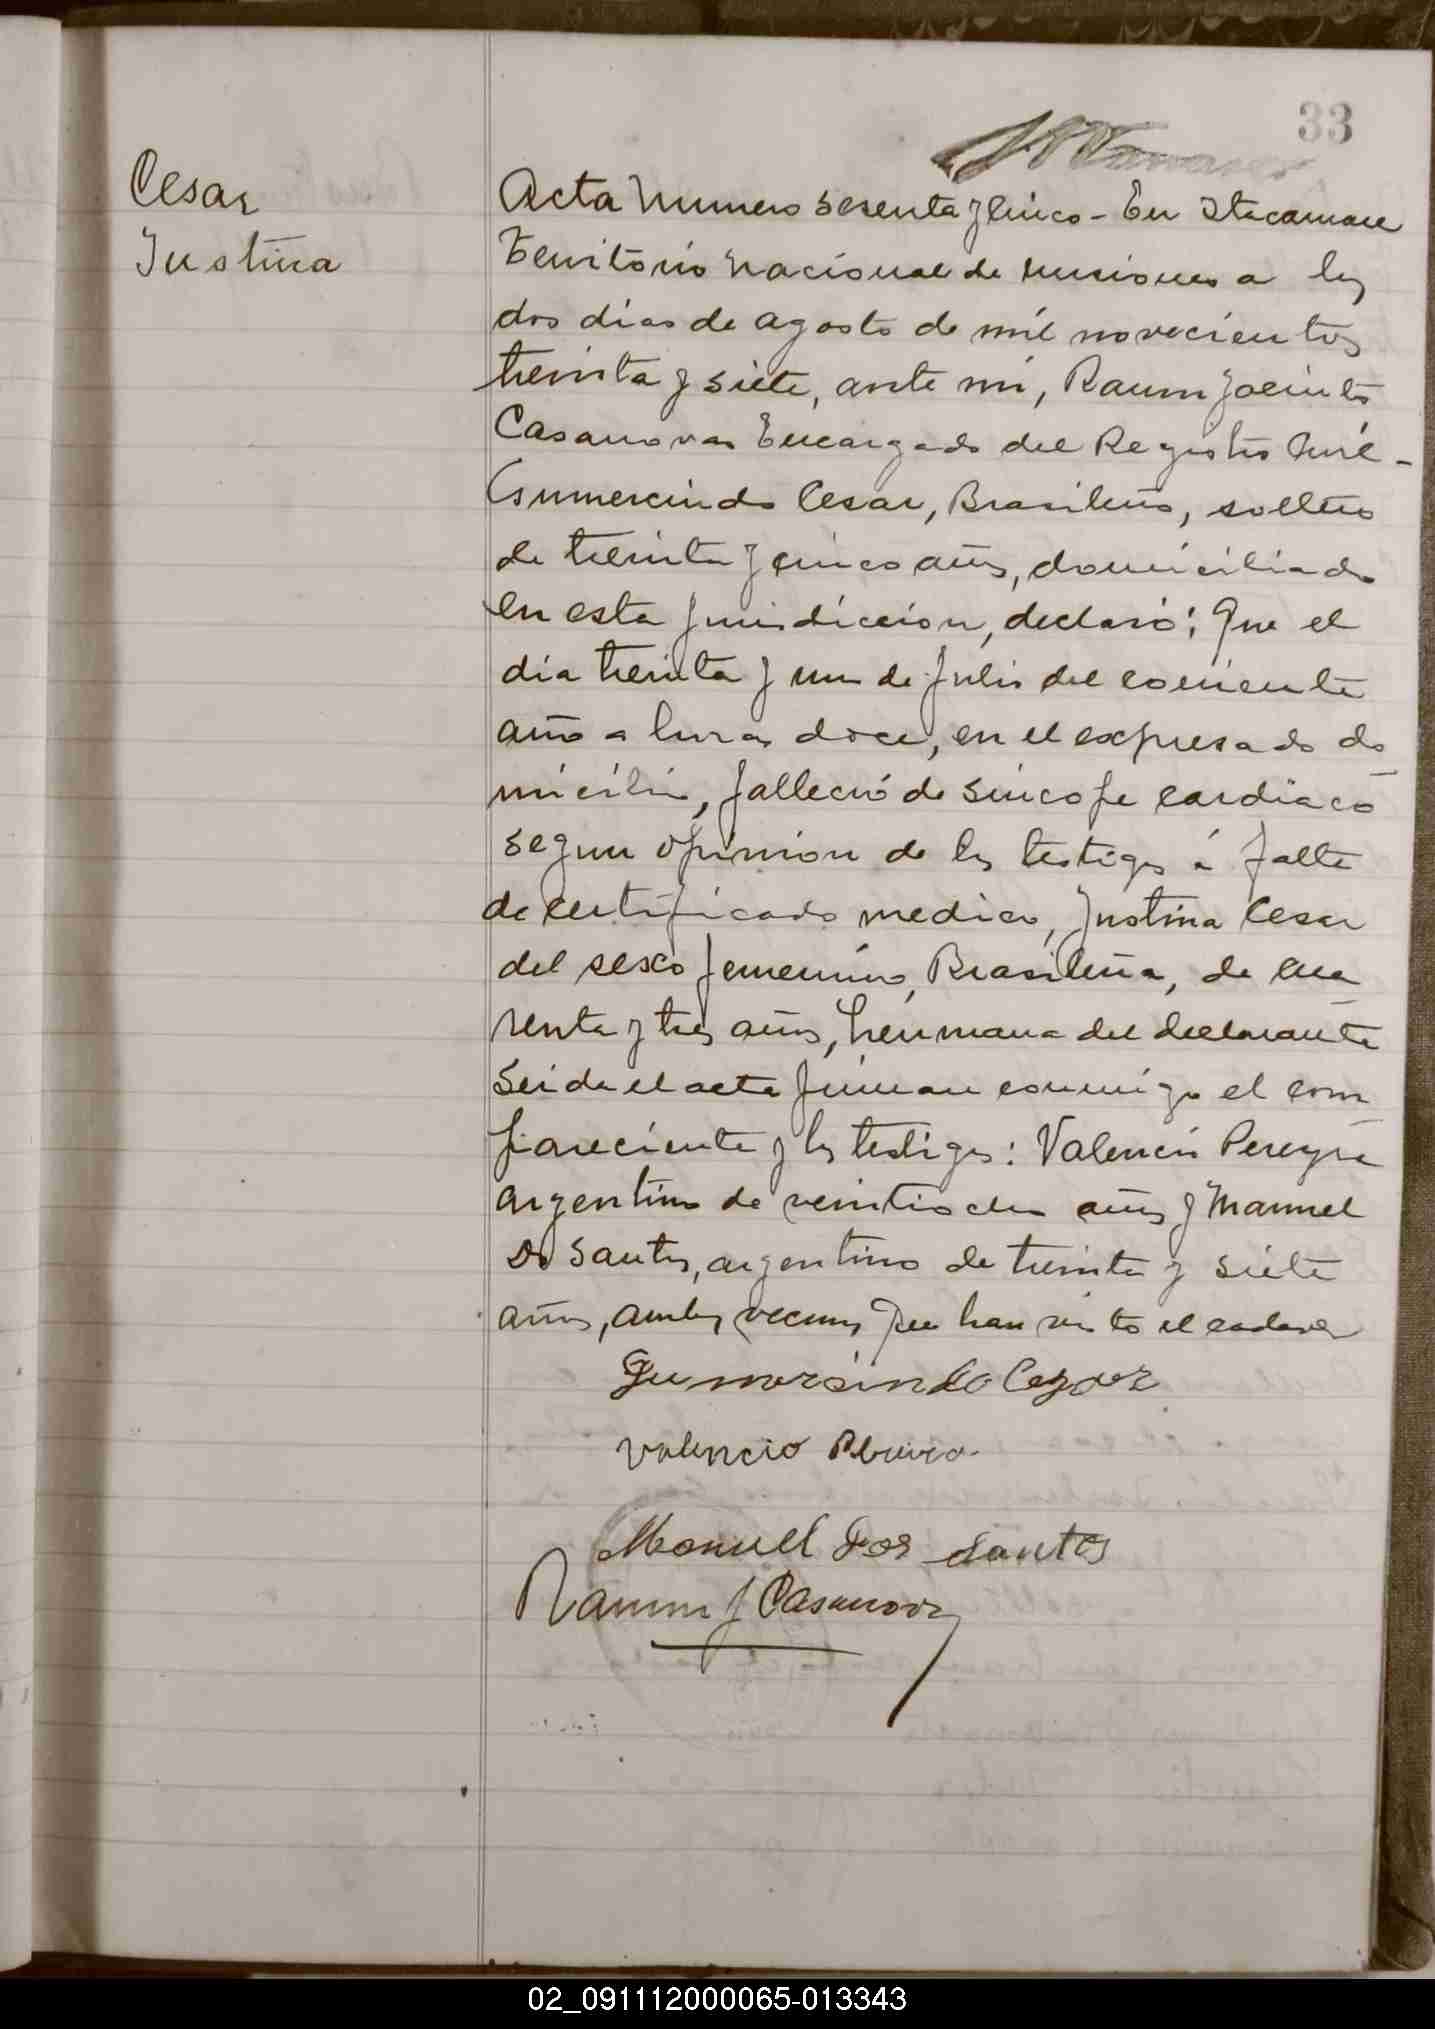 33
Cesar
Justina
Acta Numero sesenta y cinco - En Itacaruare
Territorio Nacional de Misiones a los
dos dias de agosto de mil novecientos
treinta y siete, ante mi, Ramon Jacinto
Casanovas Encargado del Registro Civil -
Gumercindo Cesar, Brasileño, soltero
de treinta y cinco años, domiciliado
en esta jurisdiccion, declaró: Que el
dia treinta y uno de Julio del corriente
año a horas doce, en el expresado do
micilio, falleció de sincope cardiaco
segun opinion de los testigos á falta
de certificado medico, Justina Cesar
del sexo femenino, Brasileña, de cua
renta y tres años, hermana del declarante
Leida el acta firman conmigo el com
pareciente y los testigos: Valencio Pereyra
argentino de veintiocho años y Manuel
Do Santos, argentino de treinta y siete
años, ambos vecinos que han visto el cadaver
Gumorsindo Cezar
Valencio
Manuel dos Santos
Ramon J Casanovas
02_091112000065-013343